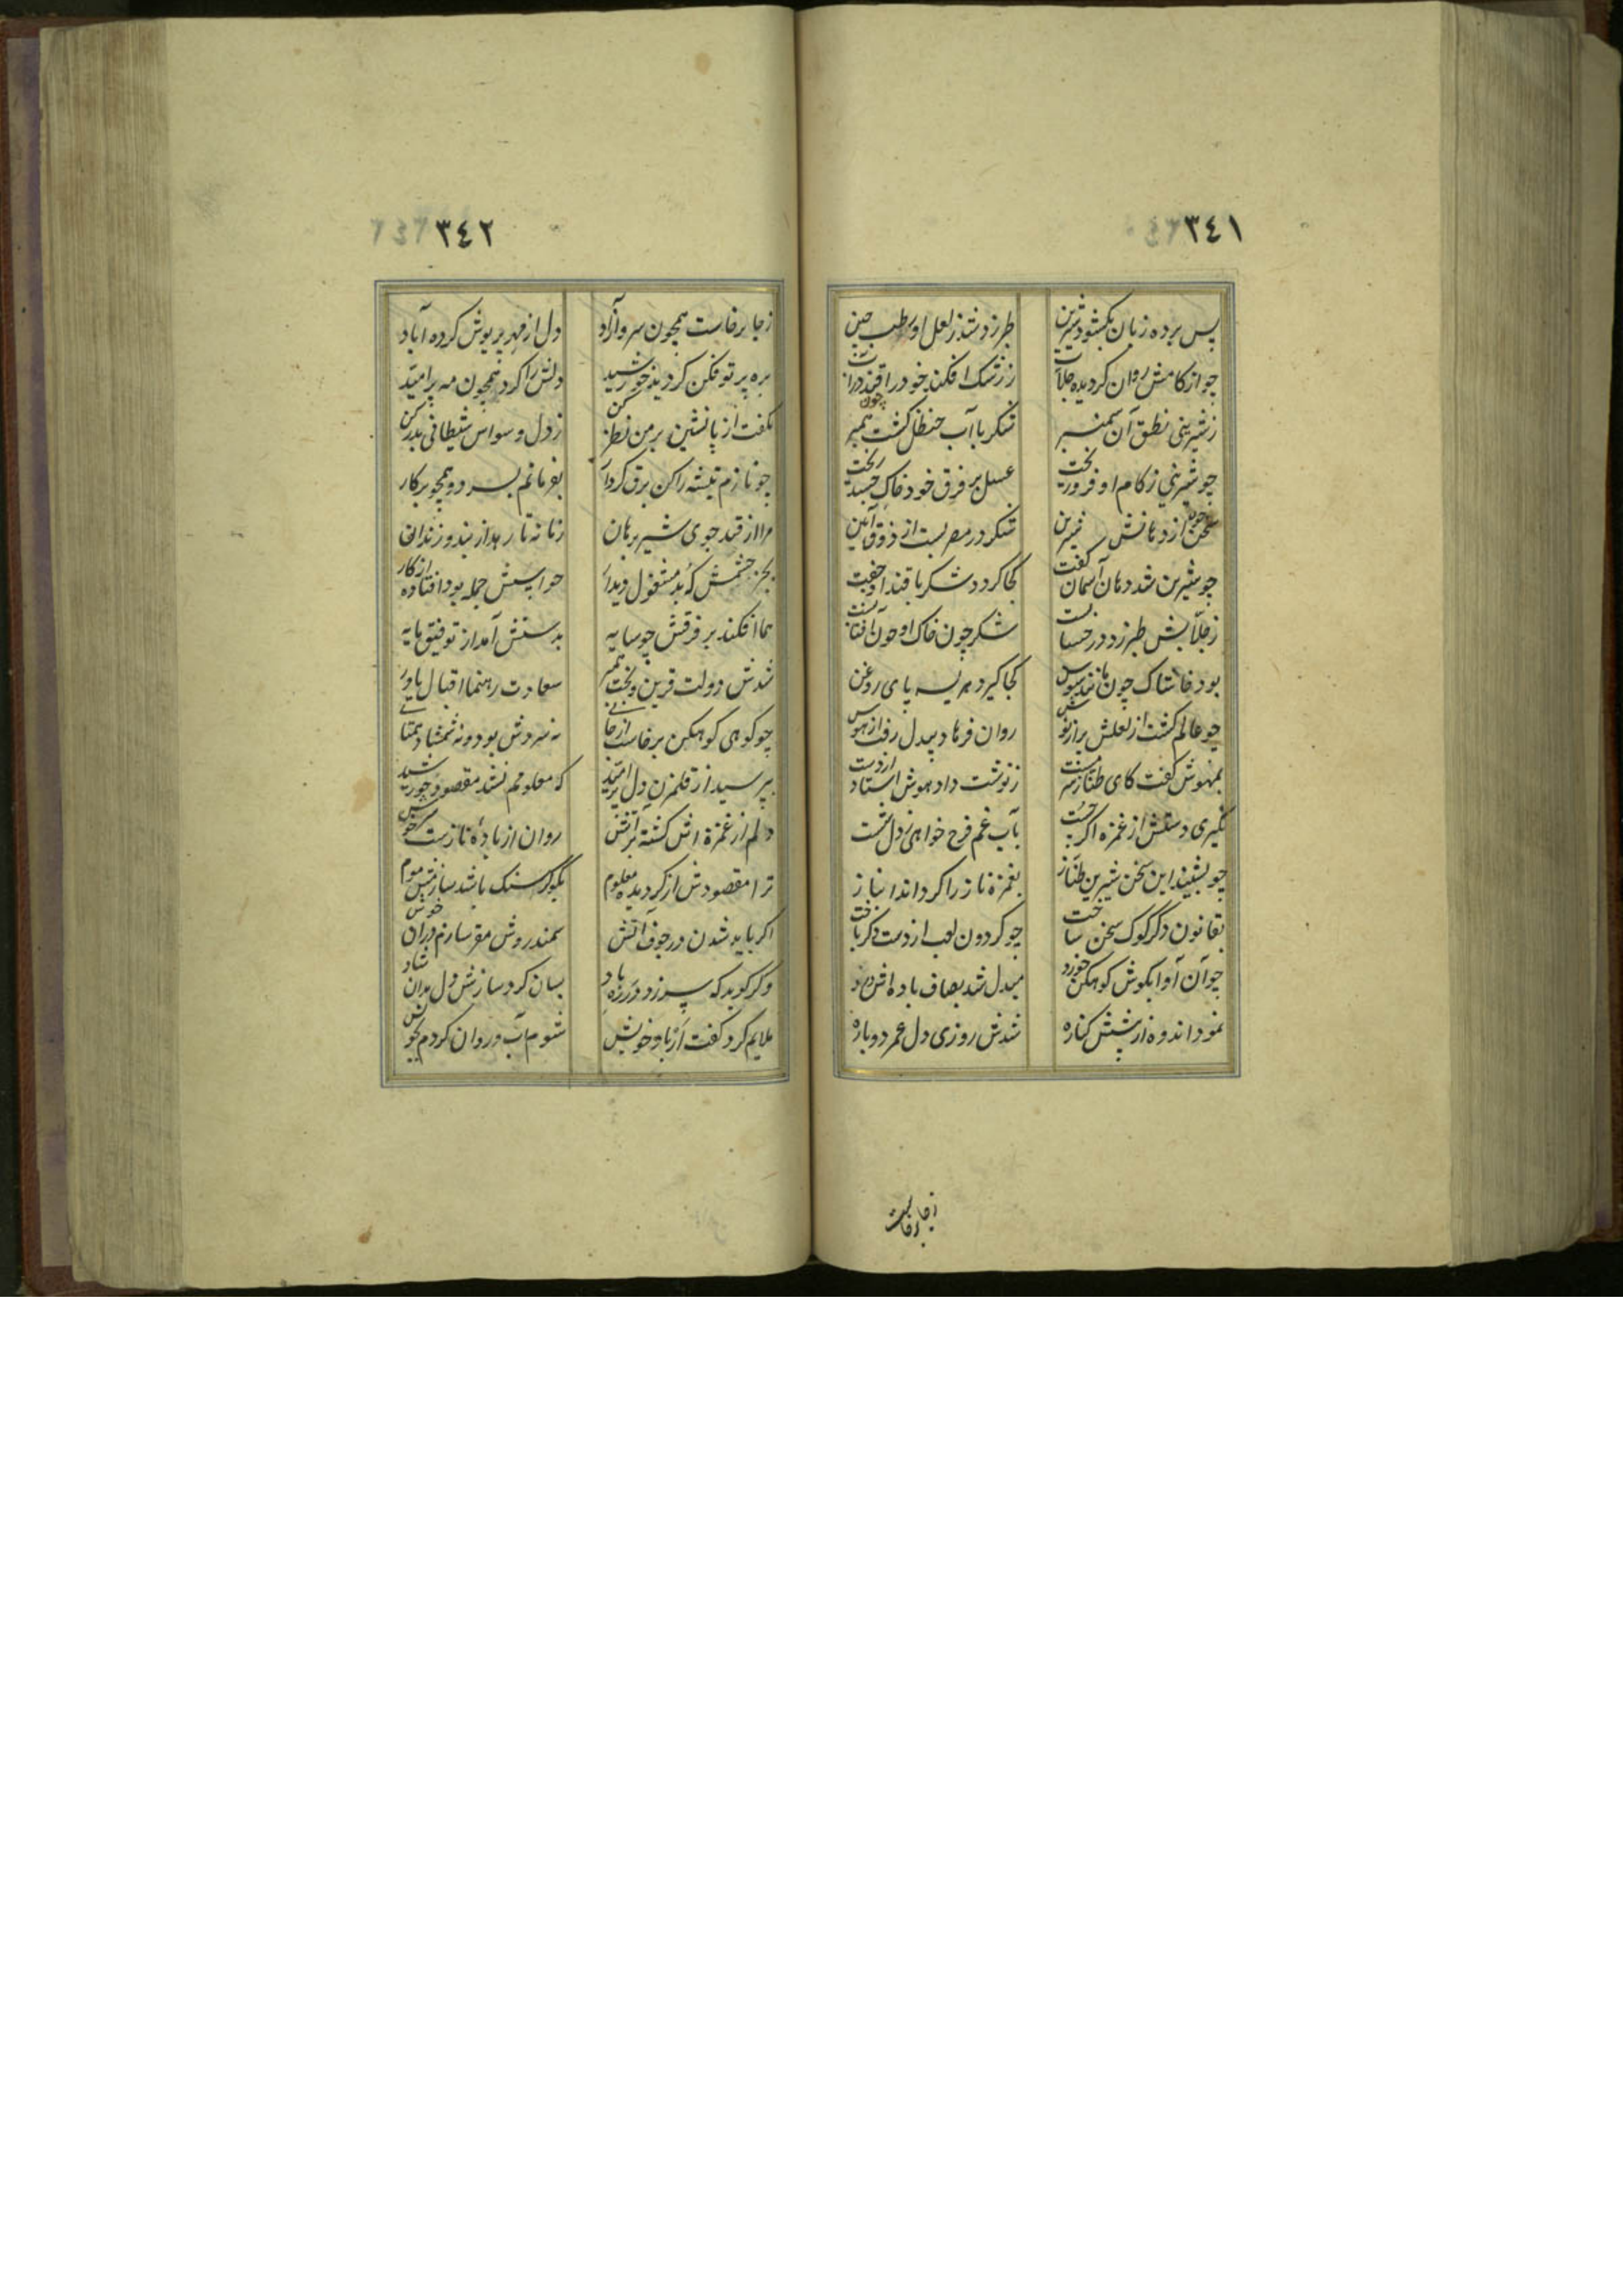 ٣٤١
پس پرده زبان بکشود شیرین طبرزد شد ز لعل او رطب چین
چو از کامش روان کردیده جلاب ز رشک افکند خود را قند در آب
ز شیرینی نطق آن سمنبر شکر با آب حنظل کشت همبر
چو شیرینی ز کام او فروریخت عسل بر فرق خود خاک
سخن چون از دهانش شیرین شکر در مصر بست از ذوق آیین
چو شیرین شد دهان آسمان کفت کجا کردد شکر با قند او جفت
ز جلابش طبرزد در شکر چون خاک او چون آفتابست
بود خاشاک چون کجا کیرد هریسه پای روغن
چو عالم کشت از لعلش پر از نوش روان فرهاد بیدل رفت از هوش
بمهوش کفت کای طناز سرمست ز نوشت داد هوش استاد از دست
نکیری دستش از غمزه اکر چست بآب غم فرح خواهی ز دل شست
چو بشنید این سخن شیرین طناز بغمزه ناز را کرداند انباز
بقانون دکر کوک سخن ساخت چو کردون لعب از دست دکر باخت
چو آن آوا بکوش کوهکن خورد مبدل شد بصاف باده اش درد
نمود اندوه از پیشش کناره شدش روزی دل عمر دوباره
ز جا برخاست
٣٤٢
ز جا برخاست همچون سرو آزاد دل از مهر پریوش کرده آباد
بره پرتو فکن کردید خورشید دلش را کرد همچون مه پر امید
بکفت از پا نشین بر من نظر کن ز دل وسواس شیطانی بدر کن
چو نازم تیشه را کن برق کردار بفرمانم بسر دو همچو پرکار
مرا از قند جوی شیر برهان زنانه تا رهد از بند و زندان
بجز چشمش که بد مشغول دیدار حواسش جمله بود افتاده از کار
هما افکند بر فرقش چو سایه بدستش آمد از توفیق مایه
شدش دولت قرین و بخت همبر سعادت رهنما اقبال یاور
چو کوهی کوهکن برخاست از جای نه سروش بود و نه شمشاد همتای
بپرسید از قلمزن دل پر امید که معلومم نشد مقصود خورشید
دلم از غمزه اش کشته پر آتش روان از باده نازست سرخوش
ترا مقصودش ار کردیده معلوم بکو کر سنک باشد سازمش موم
اکر باید شدن در جوف آتش سمندروش مقر سازم در آن خوش
وکر کوید که سر زد بسان کرد سازش دل بدان شاد
ملایم کرد کفت شوم آب و روان کردم